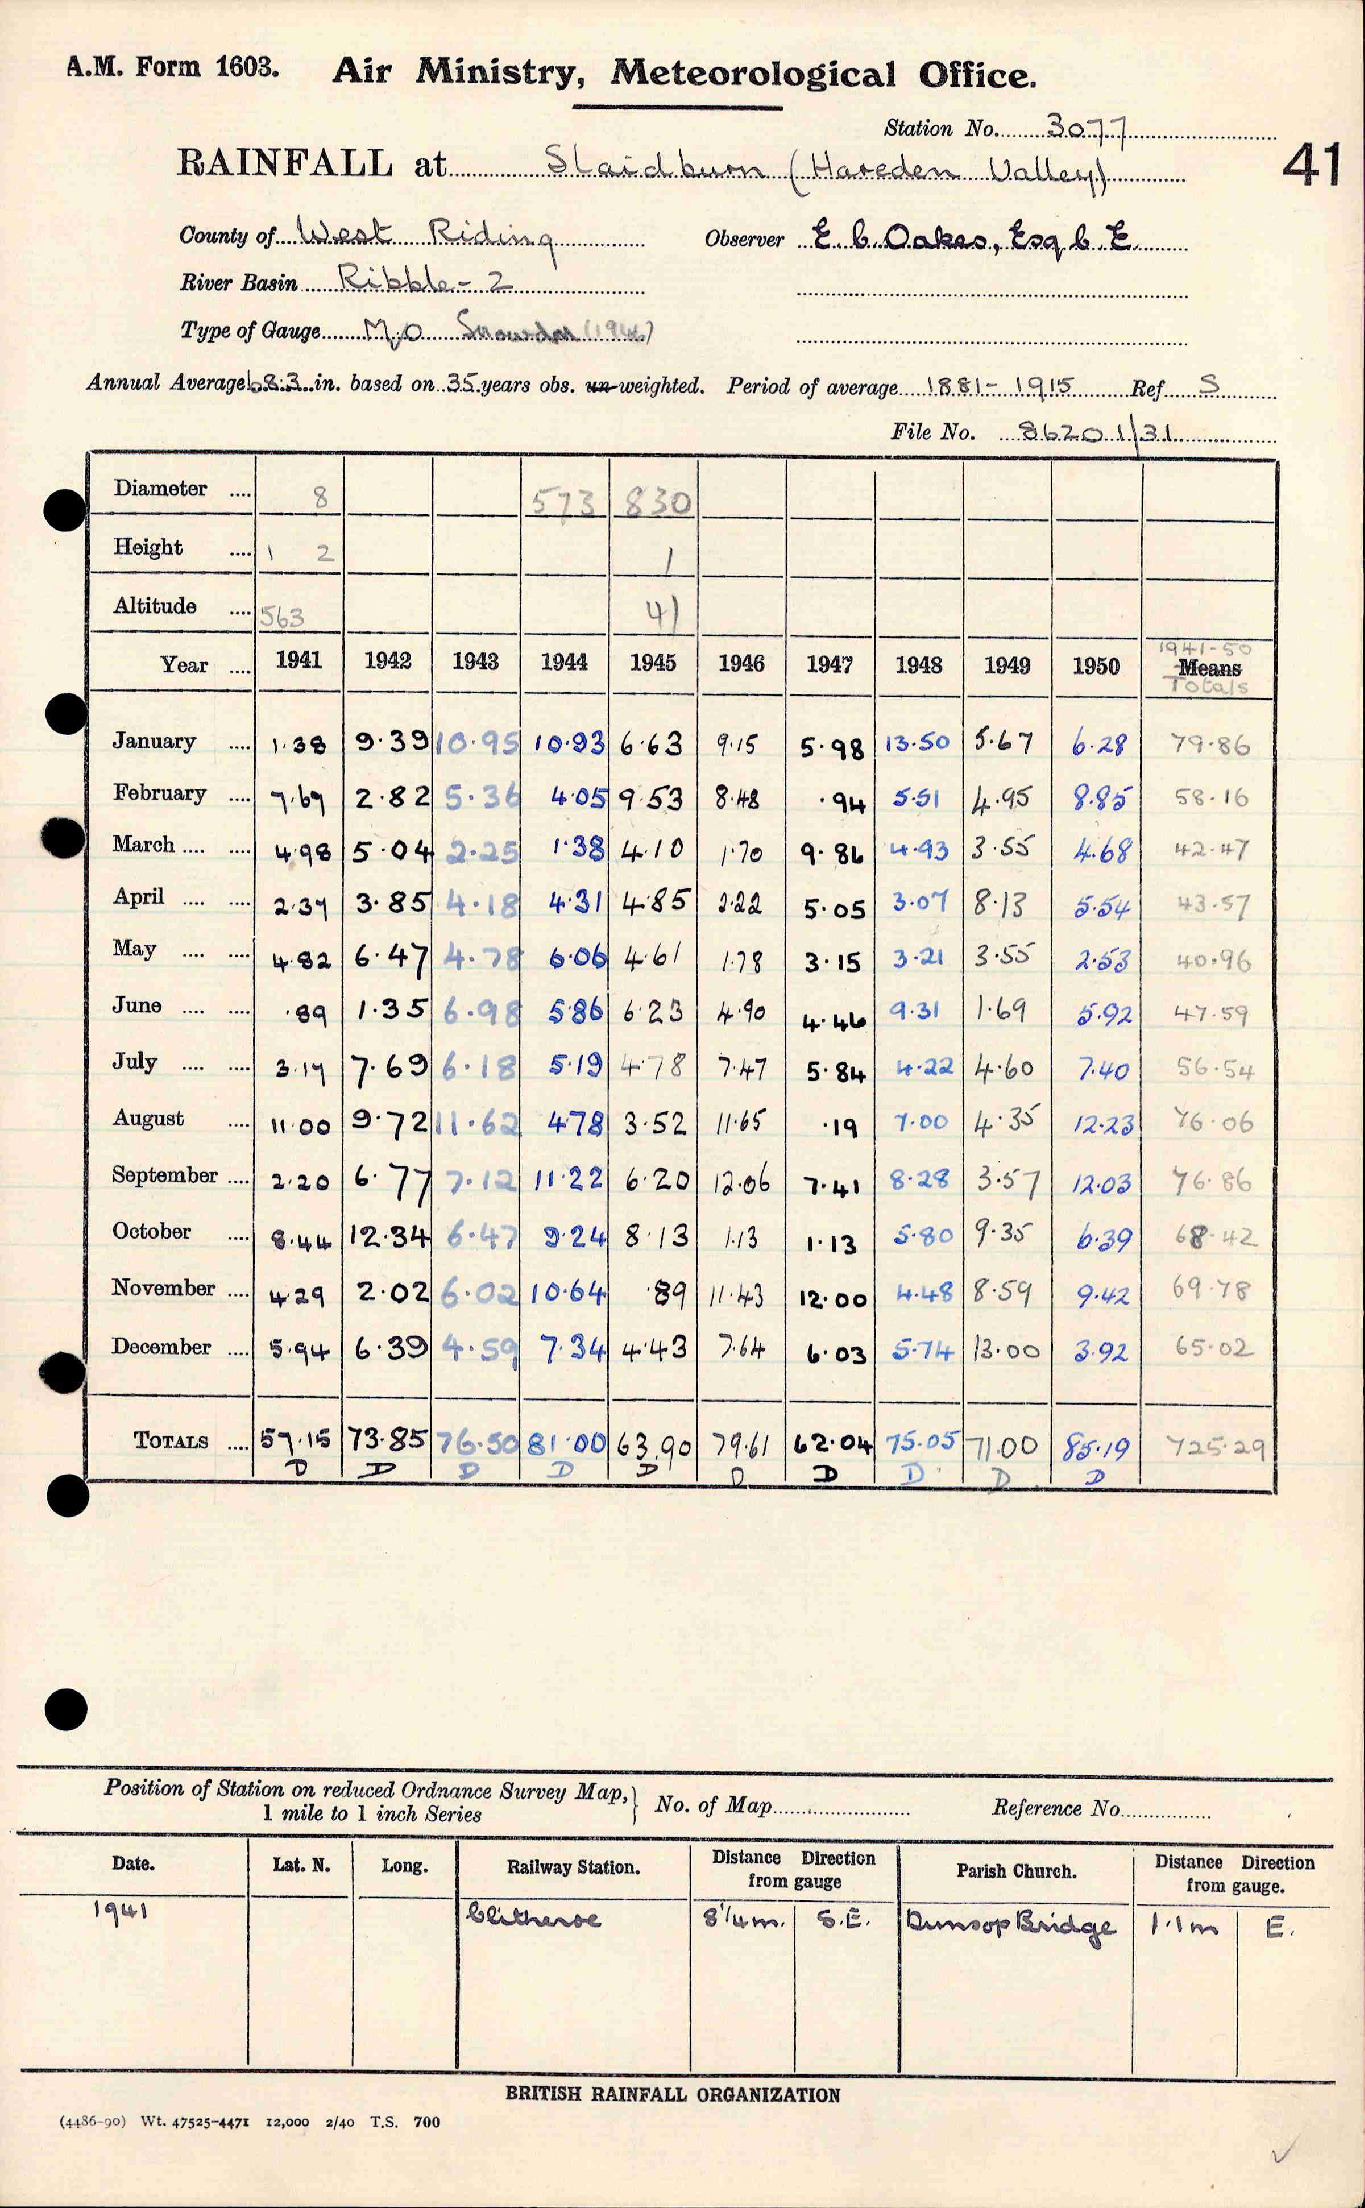 A.M. Form 1603. Air Ministry, Meteorological Office.
Station No. 3077
41
RAINFALL at Slaidburn (Hareden Valley)
County of West Riding Observer E C Oakes, Esq C. E.
River Basin Ribble - 2
Type of Gauge M.O Snowdon (1941)
Annual Average 68.3 in. based on 35 years obs. un-weighted. Period of average 1881 - 1915 Ref S
File No. 86201/31
Diameter .... 8 573 830
Height .... 1 2 1
Altitude .... 563 41
Year .... 1941 1942 1943 1944 1945 1946 1947 1948 1949 1950 1941-50 Means Totals
January .... 1.38 9.39 10.95 10.93 6.63 9.15 5.98 13.50 5.67 6.28 79.86
February .... 7.67 2.82 5.36 4.05 9.53 8.48 .94 5.51 4.95 8.85 58.16
March .... .... 4.98 5.04 2.25 1.38 4.10 1.70 9.86 4.93 3.55 4.68 42.47
April .... .... 2.37 3.85 4.18 4.31 4.85 2.22 5.05 3.07 8.13 5.54 43.57
May .... .... 4.82 6.47 4.78 6.06 4.61 1.78 3.15 3.21 3.55 2.53 40.96
June .... .... .89 1.35 6.98 5.86 6.23 4.90 4.46 9.31 1.69 5.92 47.59
July .... .... 3.17 7.69 6.18 5.19 4.78 7.47 5.84 4.22 4.60 7.40 56.54
August .... 11.00 9.72 11.62 4.78 3.52 11.65 .19 7.00 4.35 12.23 76.06
September .... 2.20 6.77 7.12 11.22 6.20 12.06 7.41 8.28 3.57 12.03 76.86
October .... 8.44 12.34 6.47 9.24 8.13 1.13 1.13 5.80 9.35 6.39 68.42
November .... 4.29 2.02 6.02 10.64 .89 11.43 12.00 4.48 8.59 9.42 69.78
December .... 5.94 6.39 4.59 7.34 4.43 7.64 6.03 5.74 13.00 3.92 65.02
TOTALS .... 57.15 73.85 76.50 81.00 63.90 79.61 62.04 75.05 71.00 85.19 725.29
D D D D D D D D D D
Position of Station on reduced Ordnance Survey Map, } No. of Map Reference No.
1 mile to 1 inch Series
Date. Lat. N. Long. Railway Station. Distance Direction from gauge Parish Church. Distance Direction from gauge.
1941 Clitheroe 8 1/4 m. S.E. Dunsop Bridge 1.1m E.
BRITISH RAINFALL ORGANIZATION
(4486-90) Wt. 47525-4471 12,000 2/40 T.S. 700